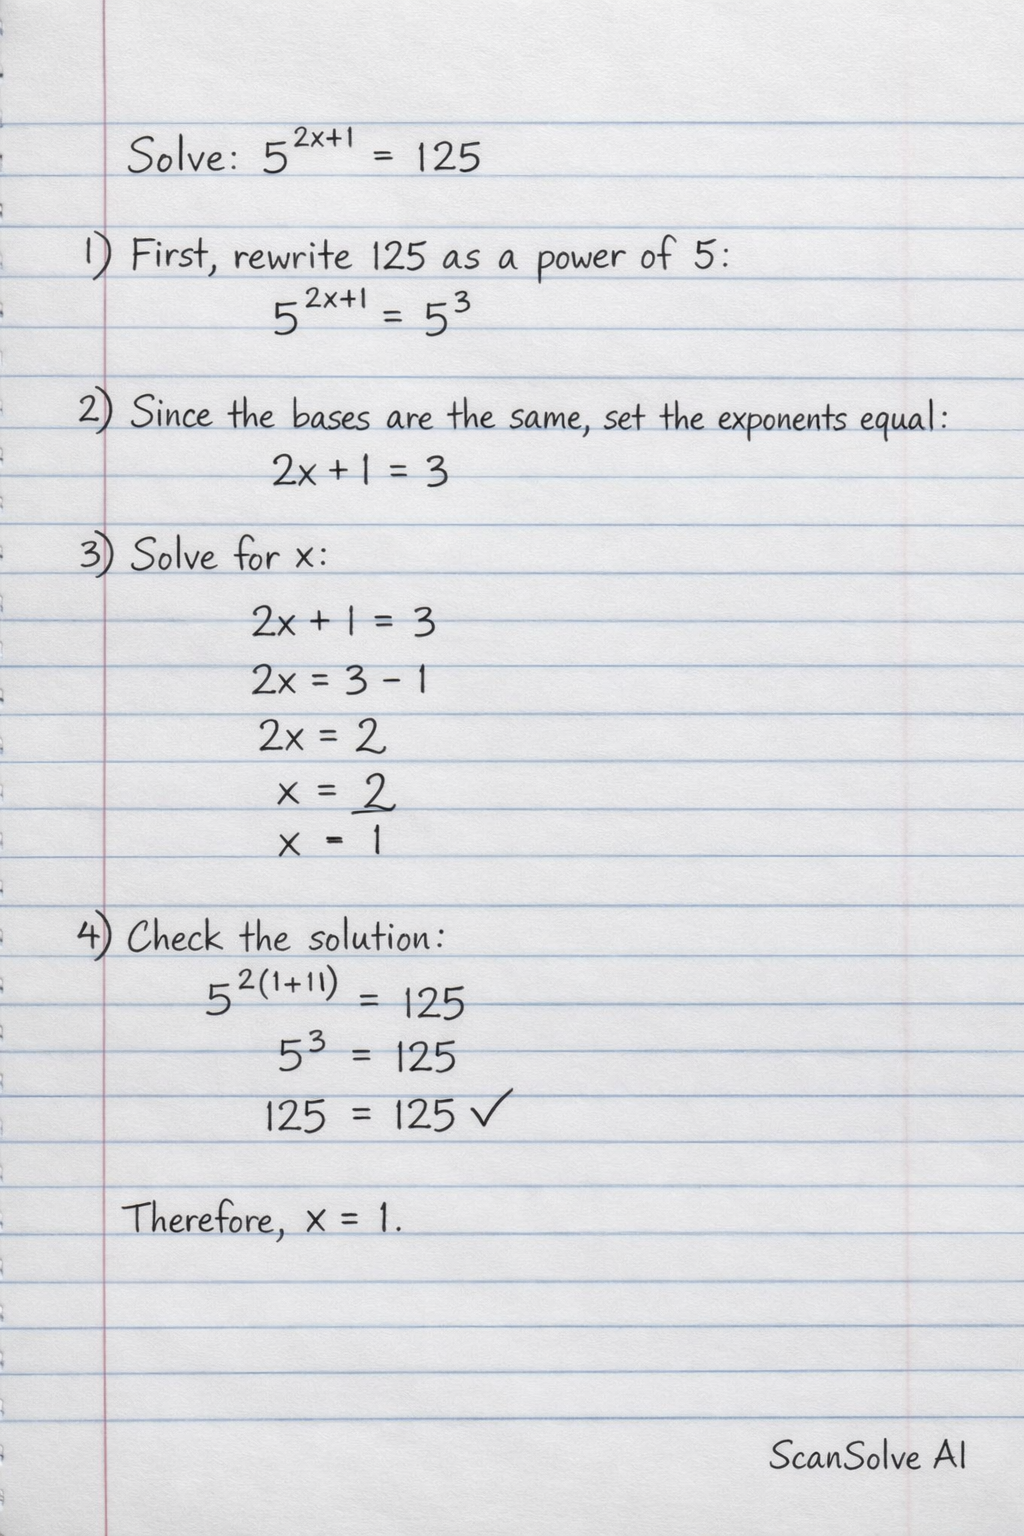 Solve: 5^{2x+1} = 125
1) First, rewrite 125 as a power of 5:
5^{2x+1} = 5^3
2) Since the bases are the same, set the exponents equal:
2x + 1 = 3
3) Solve for x:
2x + 1 = 3
2x = 3 - 1
2x = 2
x = 2
x - 1
4) Check the solution:
5^{2(1+11)} = 125
5^3 = 125
125 = 125 ✓
Therefore, x = 1.
ScanSolve AI